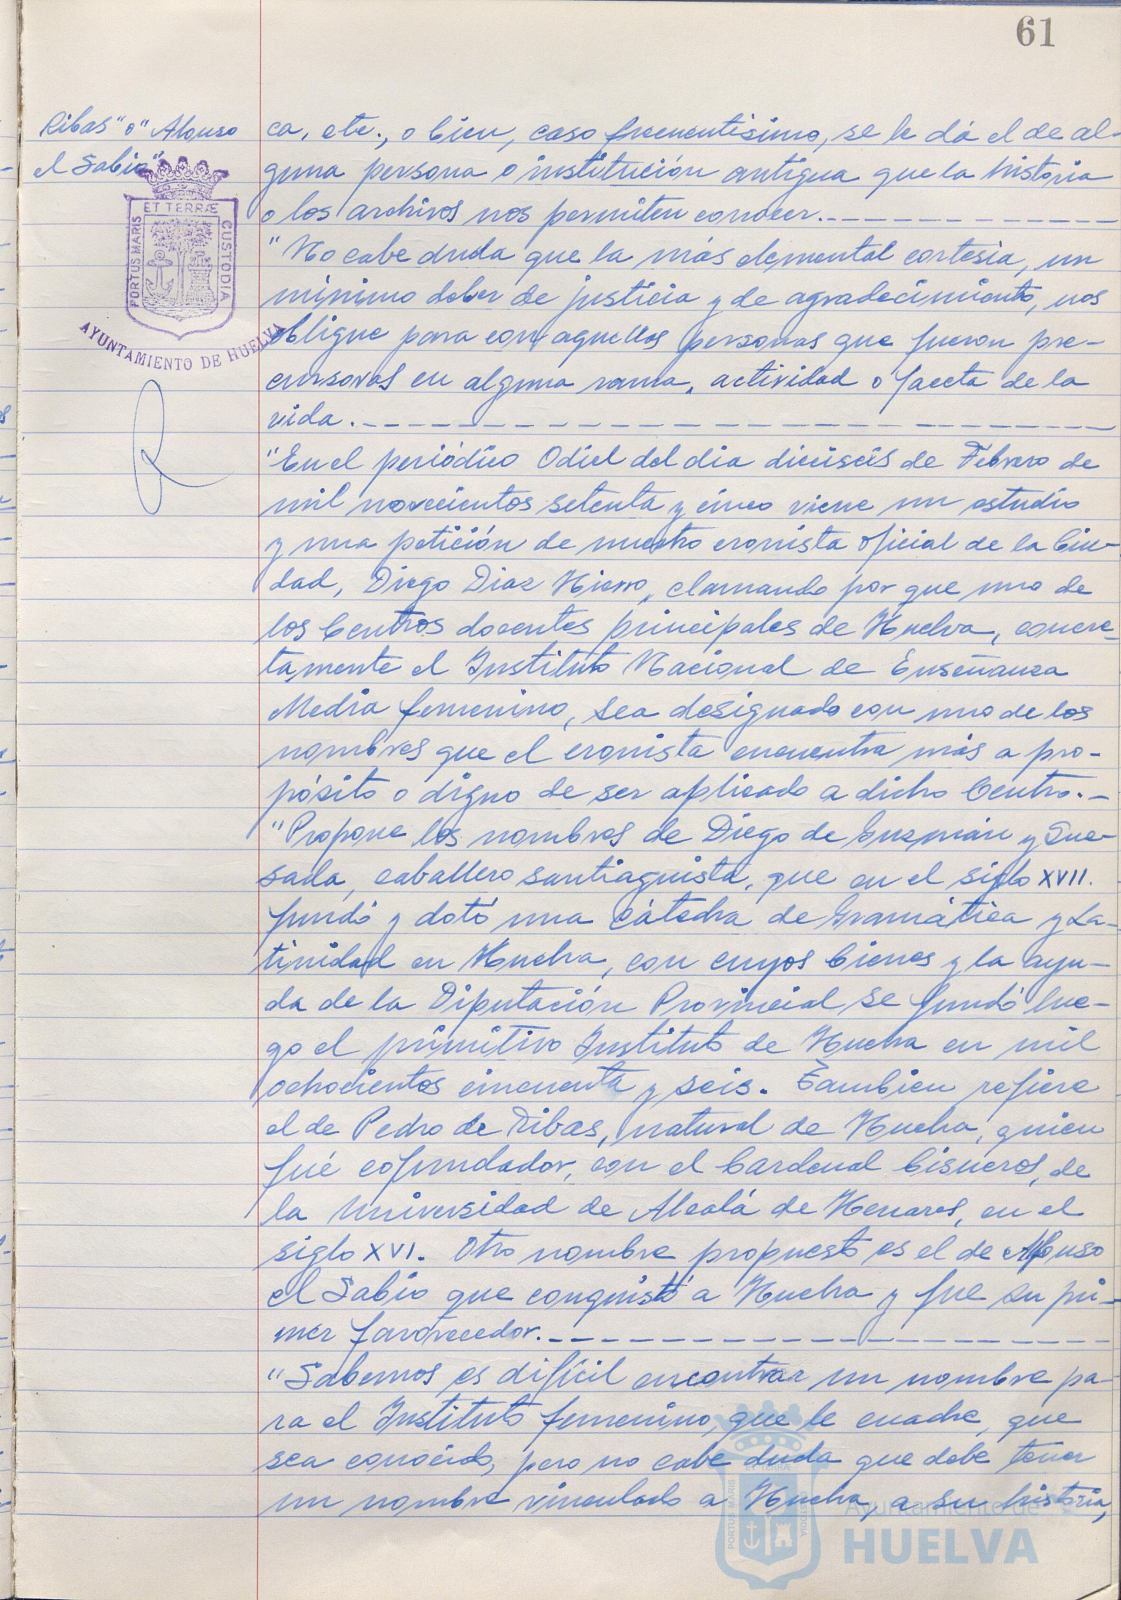 61
Ribas" o "Alonso
el Sabio"
ET TERRÆ
PORTUS MARIS
CUSTODIA
AYUNTAMIENTO DE HUELVA
ca, etc., o bien, caso frecuentísimo, se le dá el de al-
guna persona o institución antigua que la historia
o los archivos nos permiten conocer.
"No cabe duda que la más elemental cortesía, un
mínimo deber de justicia y de agradecimiento, nos
obligue para con aquellas personas que fueron pre-
cursoras en alguna rama, actividad o faceta de la
vida.
"En el periódico Odiel del dia dieciseis de Febrero de
mil novecientos setenta y cinco viene un estudio
y una petición de nuestro cronista oficial de la Ciu-
dad, Diego Diaz Hierro, clamando por que uno de
los Centros docentes principales de Huelva, concre-
tamente el Instituto Nacional de Enseñanza
Media femenino, sea designado con uno de los
nombres que el cronista encuentra más a pro-
pósito o digno de ser aplicado a dicho Centro.-
"Propone los nombres de Diego de Guzmán y Que-
sada, caballero santiaguista, que en el siglo XVII.
fundó y dotó una cátedra de Gramática y La-
tinidad en Huelva, con cuyos bienes y la ayu-
da de la Diputación Provincial se fundó lue-
go el primitivo Instituto de Huelva en mil
ochocientos cincuenta y seis. Tambien refiere
el de Pedro de Ribas, natural de Huelva, quien
fué cofundador, con el Cardenal Cisneros, de
la Universidad de Alcalá de Henares, en el
siglo XVI. Otro nombre propuesto es el de Alfonso
el Sabio que conquistó a Huelva y fue su pri-
mer favorecedor.
"Sabemos es difícil encontrar un nombre pa-
ra el Instituto femenino, que le cuadre, que
sea conocido, pero no cabe duda que debe tener
un nombre vinculado a Huelva, a su historia,
PORTUS MARIS
CUSTODIA
Ayuntamiento de
HUELVA